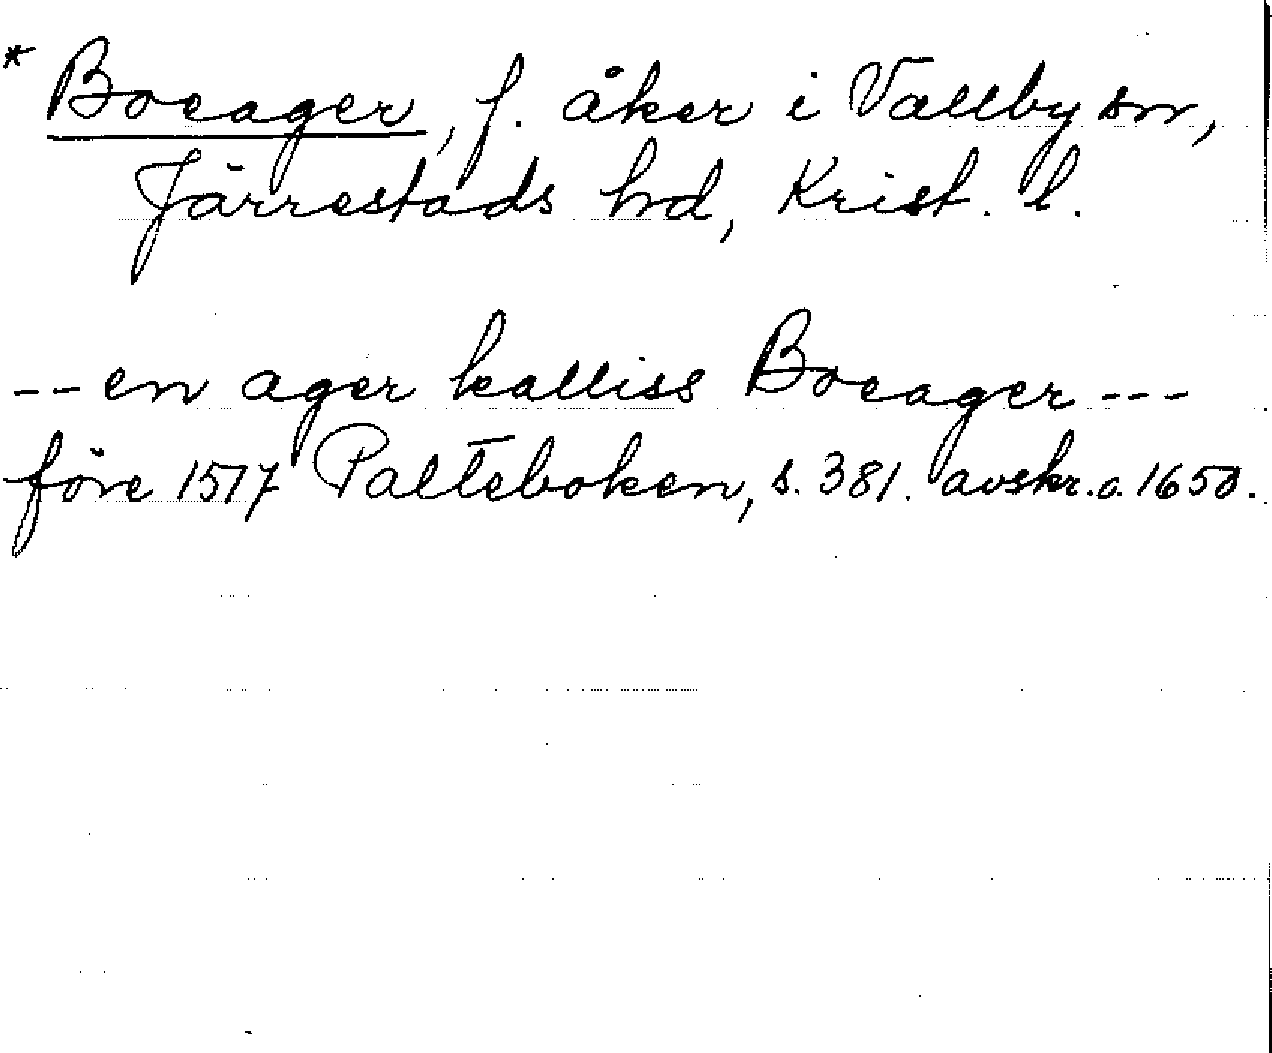 * Boeager, f. åker i Vallby sn,
Järrestads hd, Krist. l.
-- en ager kalliss Boeager ---
före 1517 Palteboken, s. 381. avskr. o. 1650.